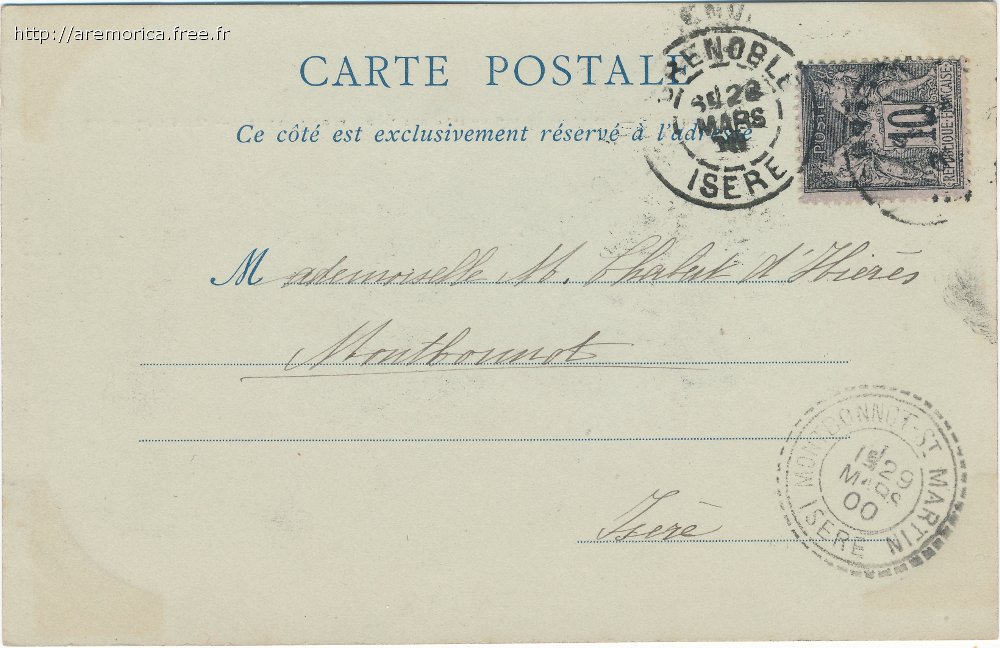 http://aremorica.free.fr
CARTE POSTALE
GRENOBLE
28
MARS
ISERE
POSTE
10
REPUBLIQUE FRANCAISE
Ce côté est exclusivement réservé à l'adresse
Mademoiselle M. Chalut d'Hières
Montbonnot
MONTBONNOT-ST MARTIN
29
MARS
00
ISERE
Isère